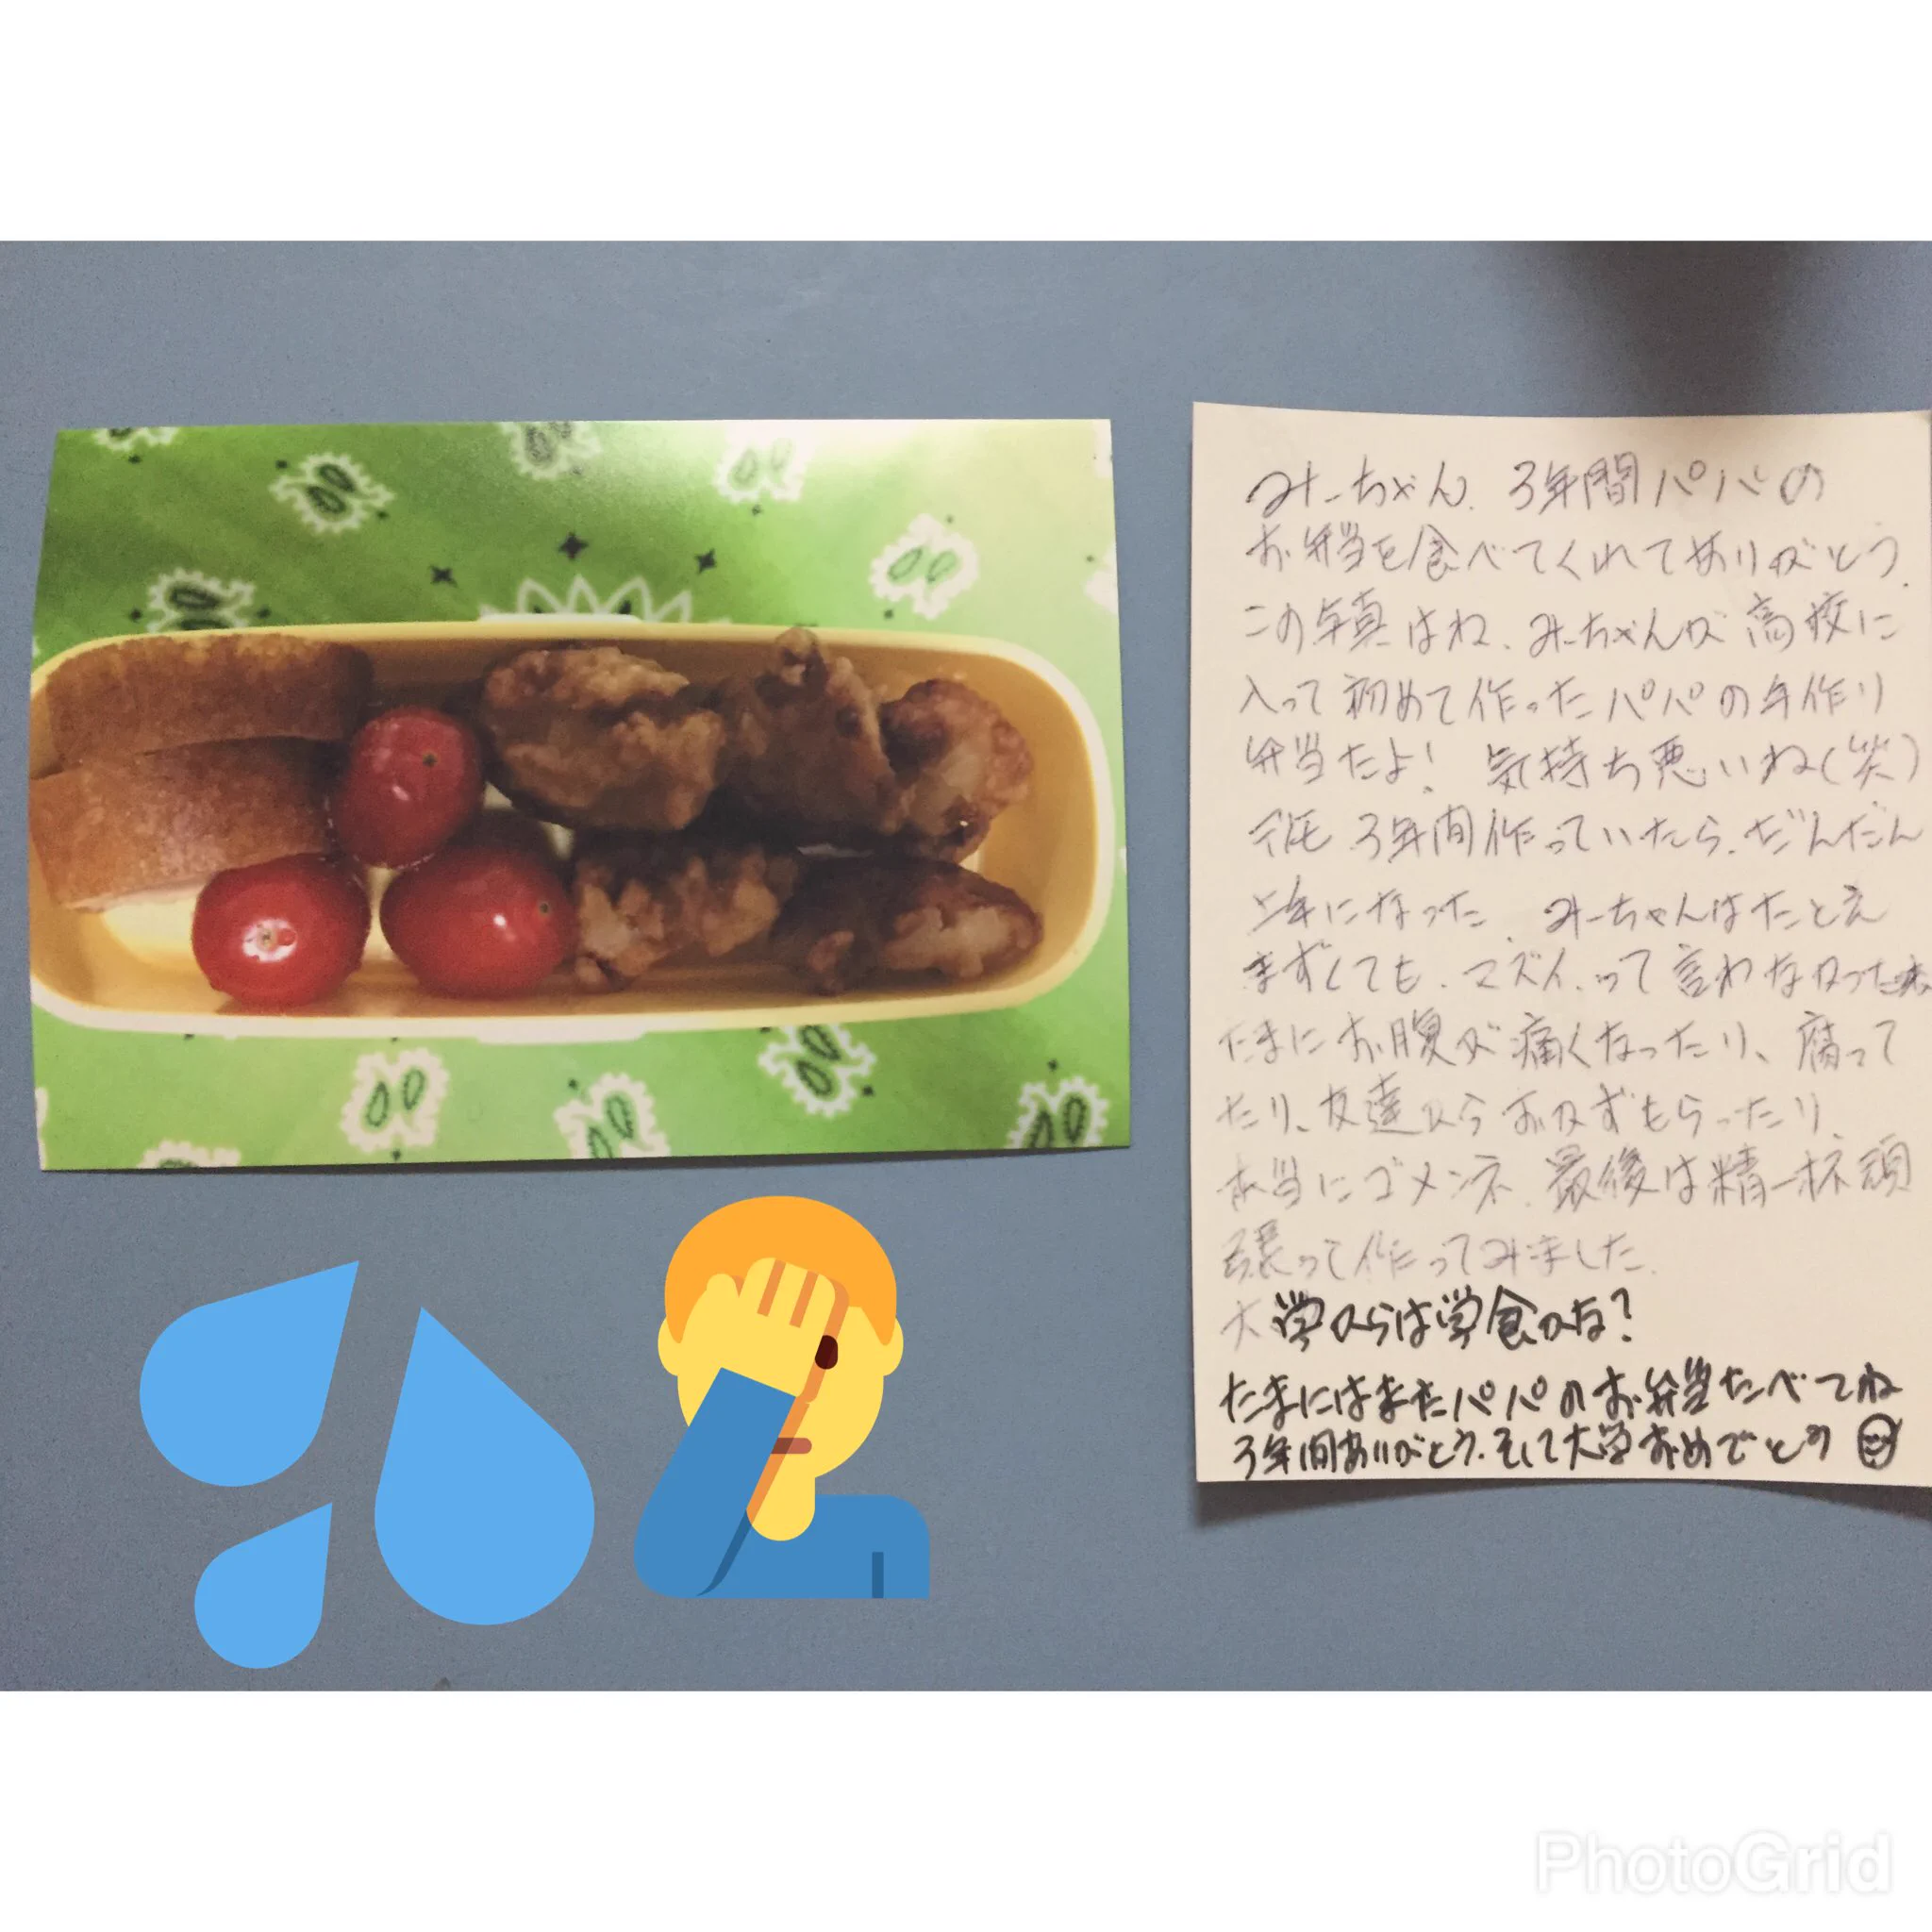 みーちゃん、3年間パパの
お弁当を食べてくれてありがとう。
この写真はね、みーちゃんが高校に
入って初めて作ったパパの手作り
弁当だよ！ 気持ち悪いね(笑)
でも、3年間作っていたら、だんだん
上手になった。みーちゃんはたとえ
まずくても、マズイ、って言わなかった
たまにお腹が痛くなったり、腐って
たり、友達からおかずもらったり、
本当にゴメンネ。最後は精一杯頑
張って作ってみました。
大学からは学食かな？
たまにはまたパパのお弁当たべてね
3年間ありがとう。そして大学おめでとう
PhotoGrid